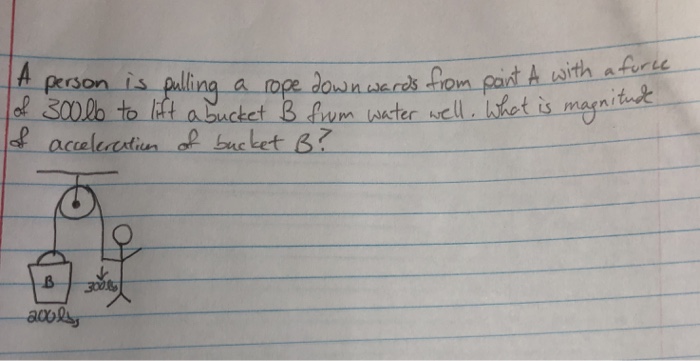 A person is pulling a rope downwards from point A with a force
of 300lb to lift a bucket B from water well. What is magnitude
of acceleration of bucket B?
B
300lbs
200lbs